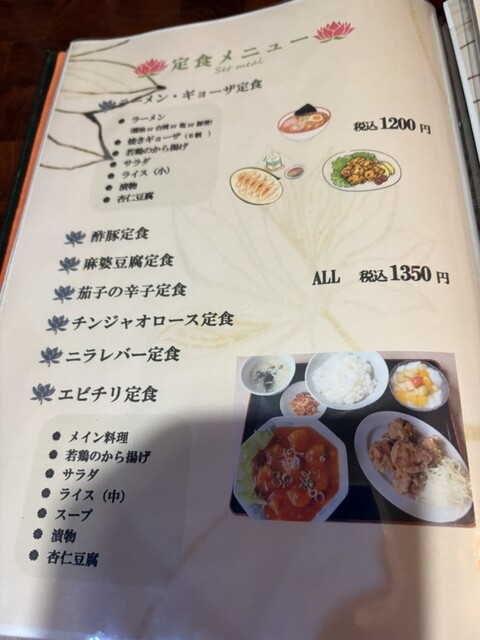 定食メニュー
Set meal
ラーメン・ギョーザ定食
ラーメン
(醤油 or 台湾 or 塩 or 豚骨)
焼きギョーザ（6個）
若鶏のから揚げ
サラダ
ライス（小）
漬物
杏仁豆腐
税込1200円
酢豚定食
麻婆豆腐定食
茄子の辛子定食
チンジャオロース定食
ニラレバー定食
エビチリ定食
ALL 税込1350円
メイン料理
若鶏のから揚げ
サラダ
ライス（中）
スープ
漬物
杏仁豆腐